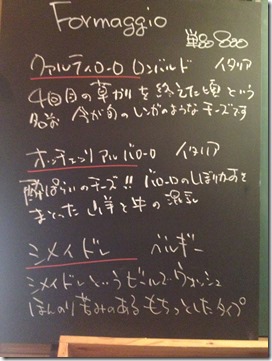 Formaggio
単品 800
クアルティローロ ロンバルド イタリア
4回目の草がりを終えた頃という
名前 今が旬のしかのようなチーズです
オッチェッリ アル バローロ イタリア
酔ぱらいのチーズ!! バローロのしぼりかすを
まとった 山羊と牛の混乳
シメイ ドレ ベルギー
シメイドレというビールでウォッシュ
ほんのり苦みのある もちっとしたタイプ